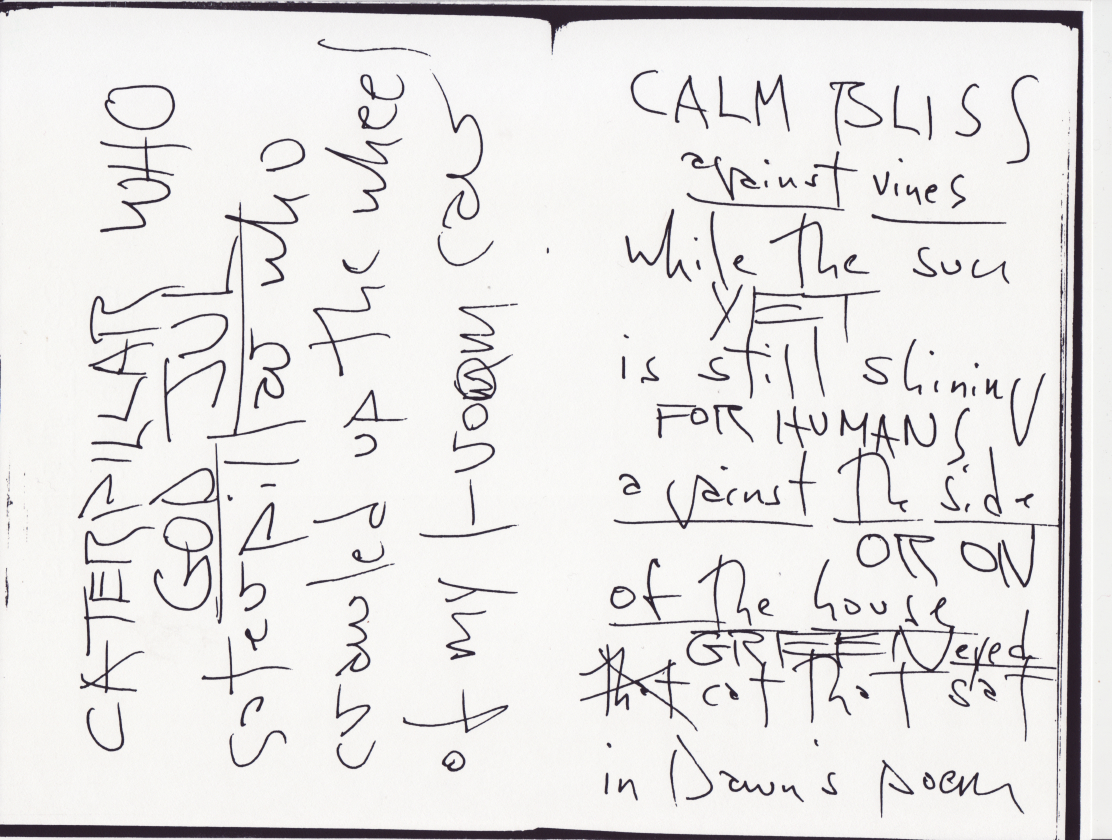 CATERPILLAR WHO
GOD JUL
caterpillar who
crawled up the wheel
of my 1-room car
CALM BLISS
against vines
while the sun
YET
is still shining
FOR HUMANS
against the side
OR ON
of the house
GREEN eyed
that cat that sat
in Dawn's poem